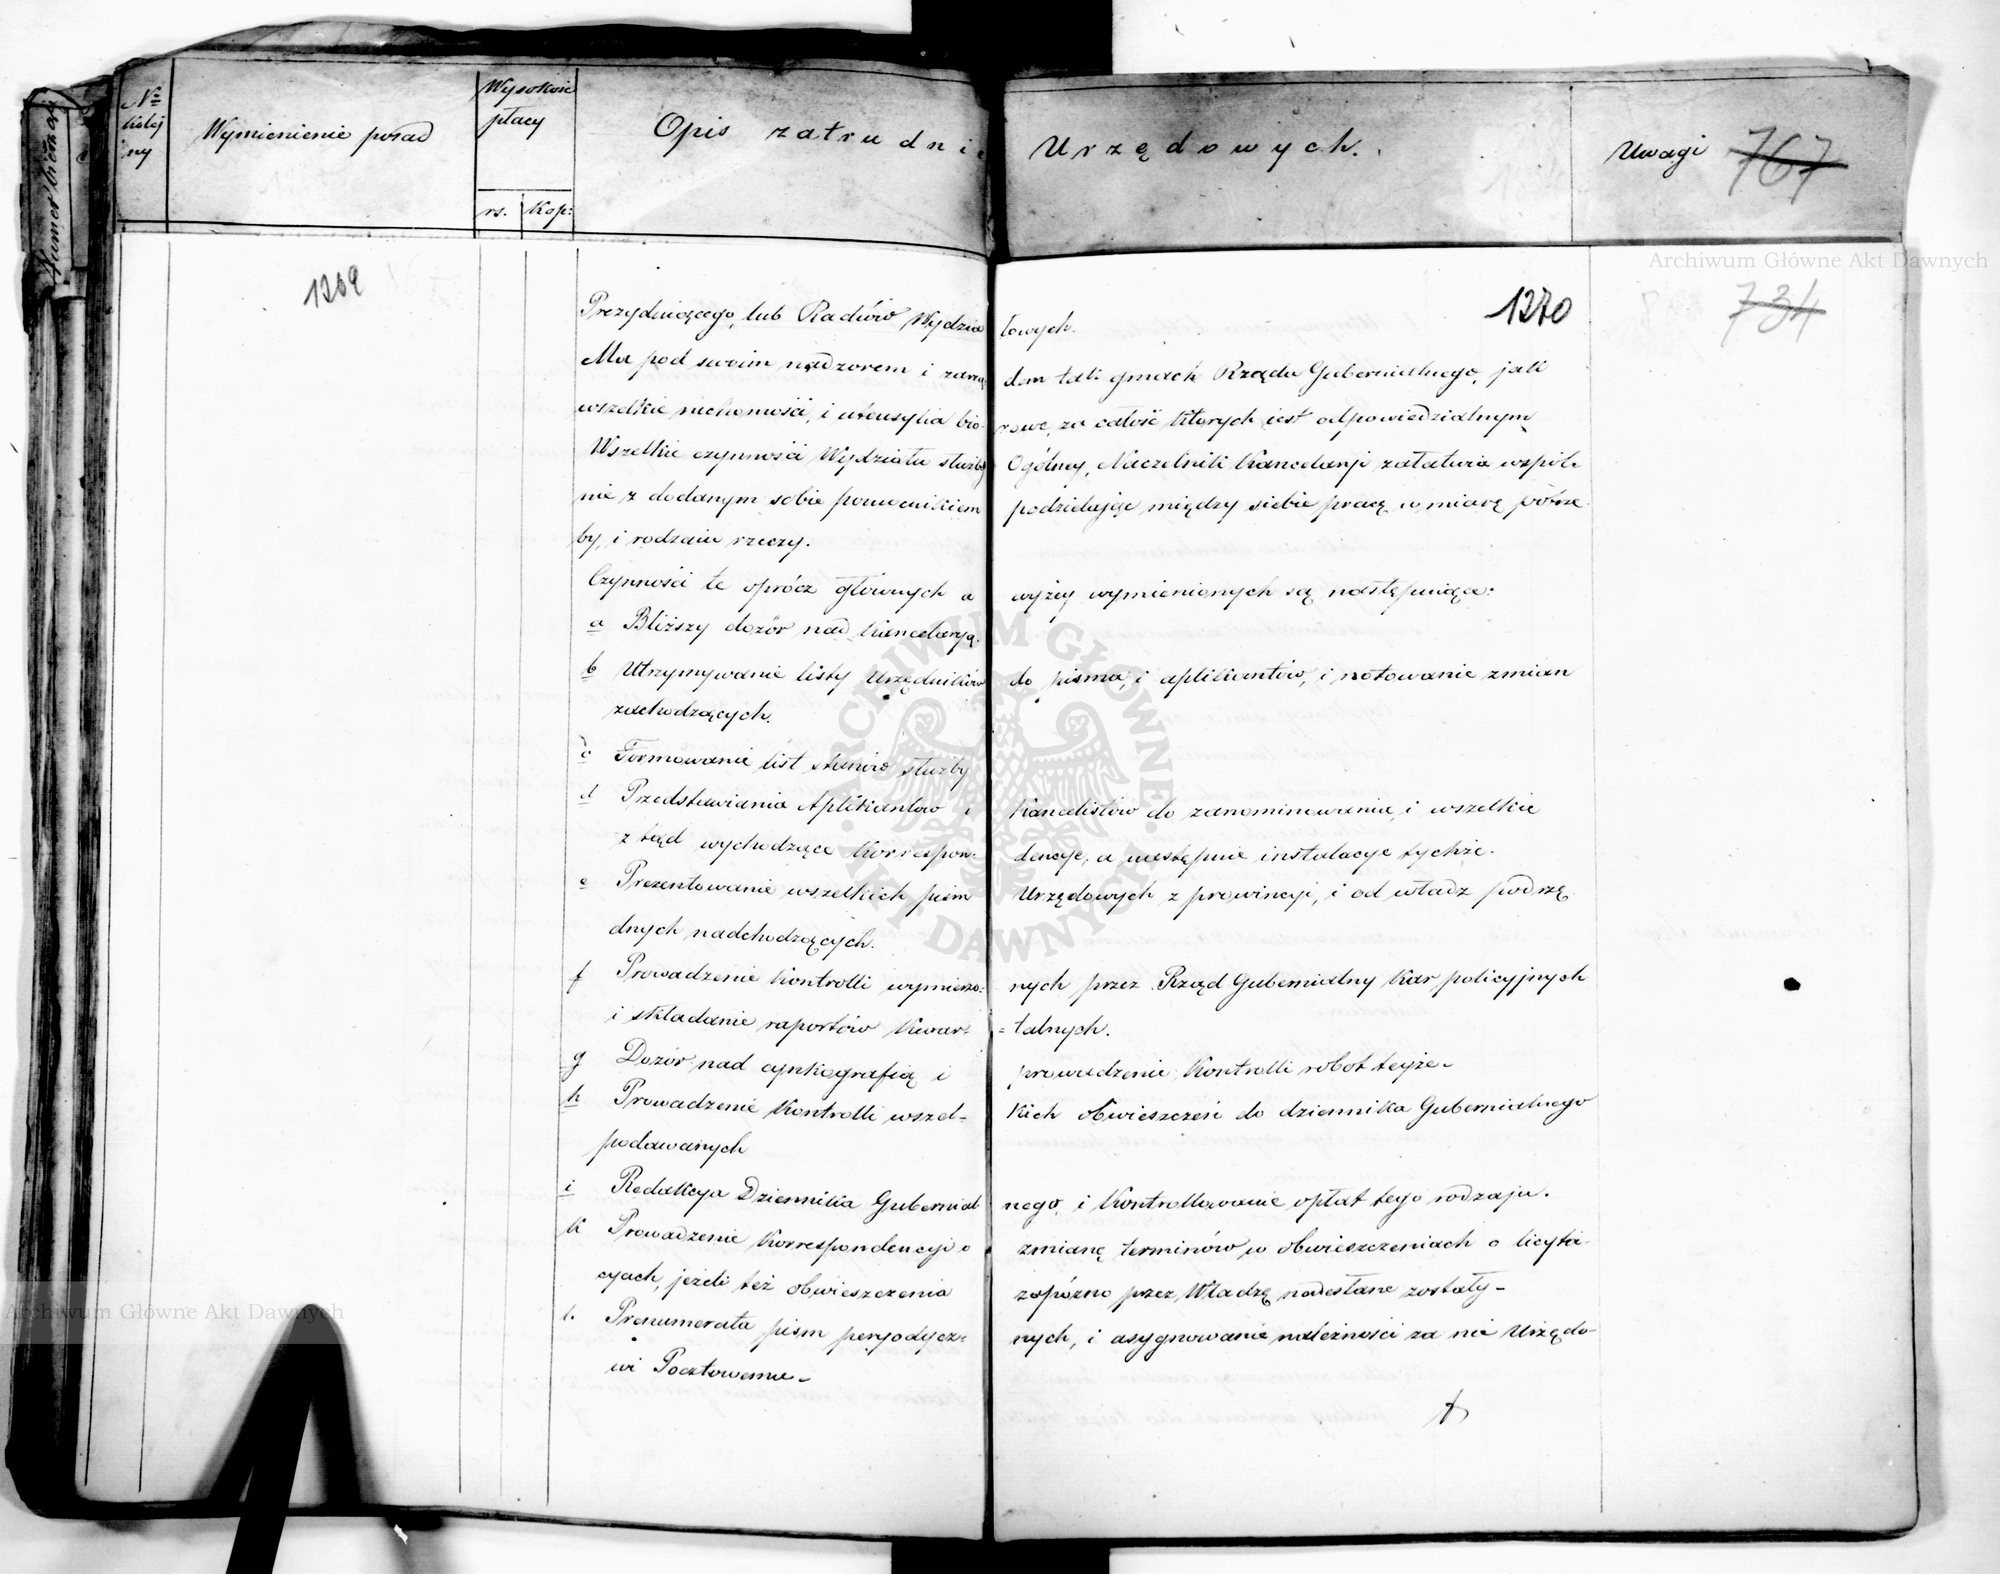 Numer bieżący
No kolej ny
Wymienienie posad
Wysokość płacy
rs. Kop:
Opis zatrudnie
Urzędowych.
Uwagi 767
1269
1270
734
Prezydującego, lub Radców Wydzia
łowych.
Ma pod swoim nadzorem i zarzą
dem tak gmach Rządu Gubernialnego, jak
wszelkie ruchomości, i utensylia biu-
rowe, za całość których jest odpowiedzialnym
Wszelkie czynności Wydziału służby
Ogólney, Naczelnik Kancelaryi załatwia wspól-
nie z dodanym sobie pomocnikiem
podzielając między siebie pracę w miarę potrze
by, i rodzaiu rzeczy.
Czynności te oprócz głównych a
wyżey wymienionych są następuiące:
a Bliższy dozór nad Kancelaryą.
b Utrzymywanie listy Urzędników
do pisma, i aplikantów, i notowanie zmian
zachodzących.
c Formowanie list stanów służby
d Przedstawiania Aplikantów i
Kancelistów do zanominowania, i wszelkie
z tąd wychodzące Korrespon-
dencye, a następnie instalacye tychże.
e Prezentowanie wszelkich pism
Urzędowych z prowincyi, i od władz podrzę
dnych nadchodzących.
f Prowadzenie Kontrolli wymierzo:
nych przez Rząd Gubernialny Kar policyjnych
i składanie raportów Kwar=
=talnych.
g Dozór nad cynkografią i
prowadzenie Kontrolli robot teyże-
h Prowadzenie Kontrolli wszel-
kich obwieszczeń do dziennika Gubernialnego
podawanych
i Redakcya Dziennika Gubernial
nego, i Kontrollowanie opłat tego rodzaju.
k Prowadzenie Korrespondencyi o
zmianę terminów w obwieszczeniach o licyta-
cyach, jeżeli też obwieszczenia
zapóźno przez Władzę nadesłane zostały-
l. Prenumerata pism peryodycz=
nych, i asygnowanie należności za nie Urzędo-
wi Pocztowemu-
Archiwum Główne Akt Dawnych
ARCHIWUM GŁÓWNE AKT DAWNYCH
Archiwum Główne Akt Dawnych